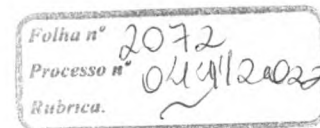 Folha nº 2072
Processo nº 044/12022
Rubrica.